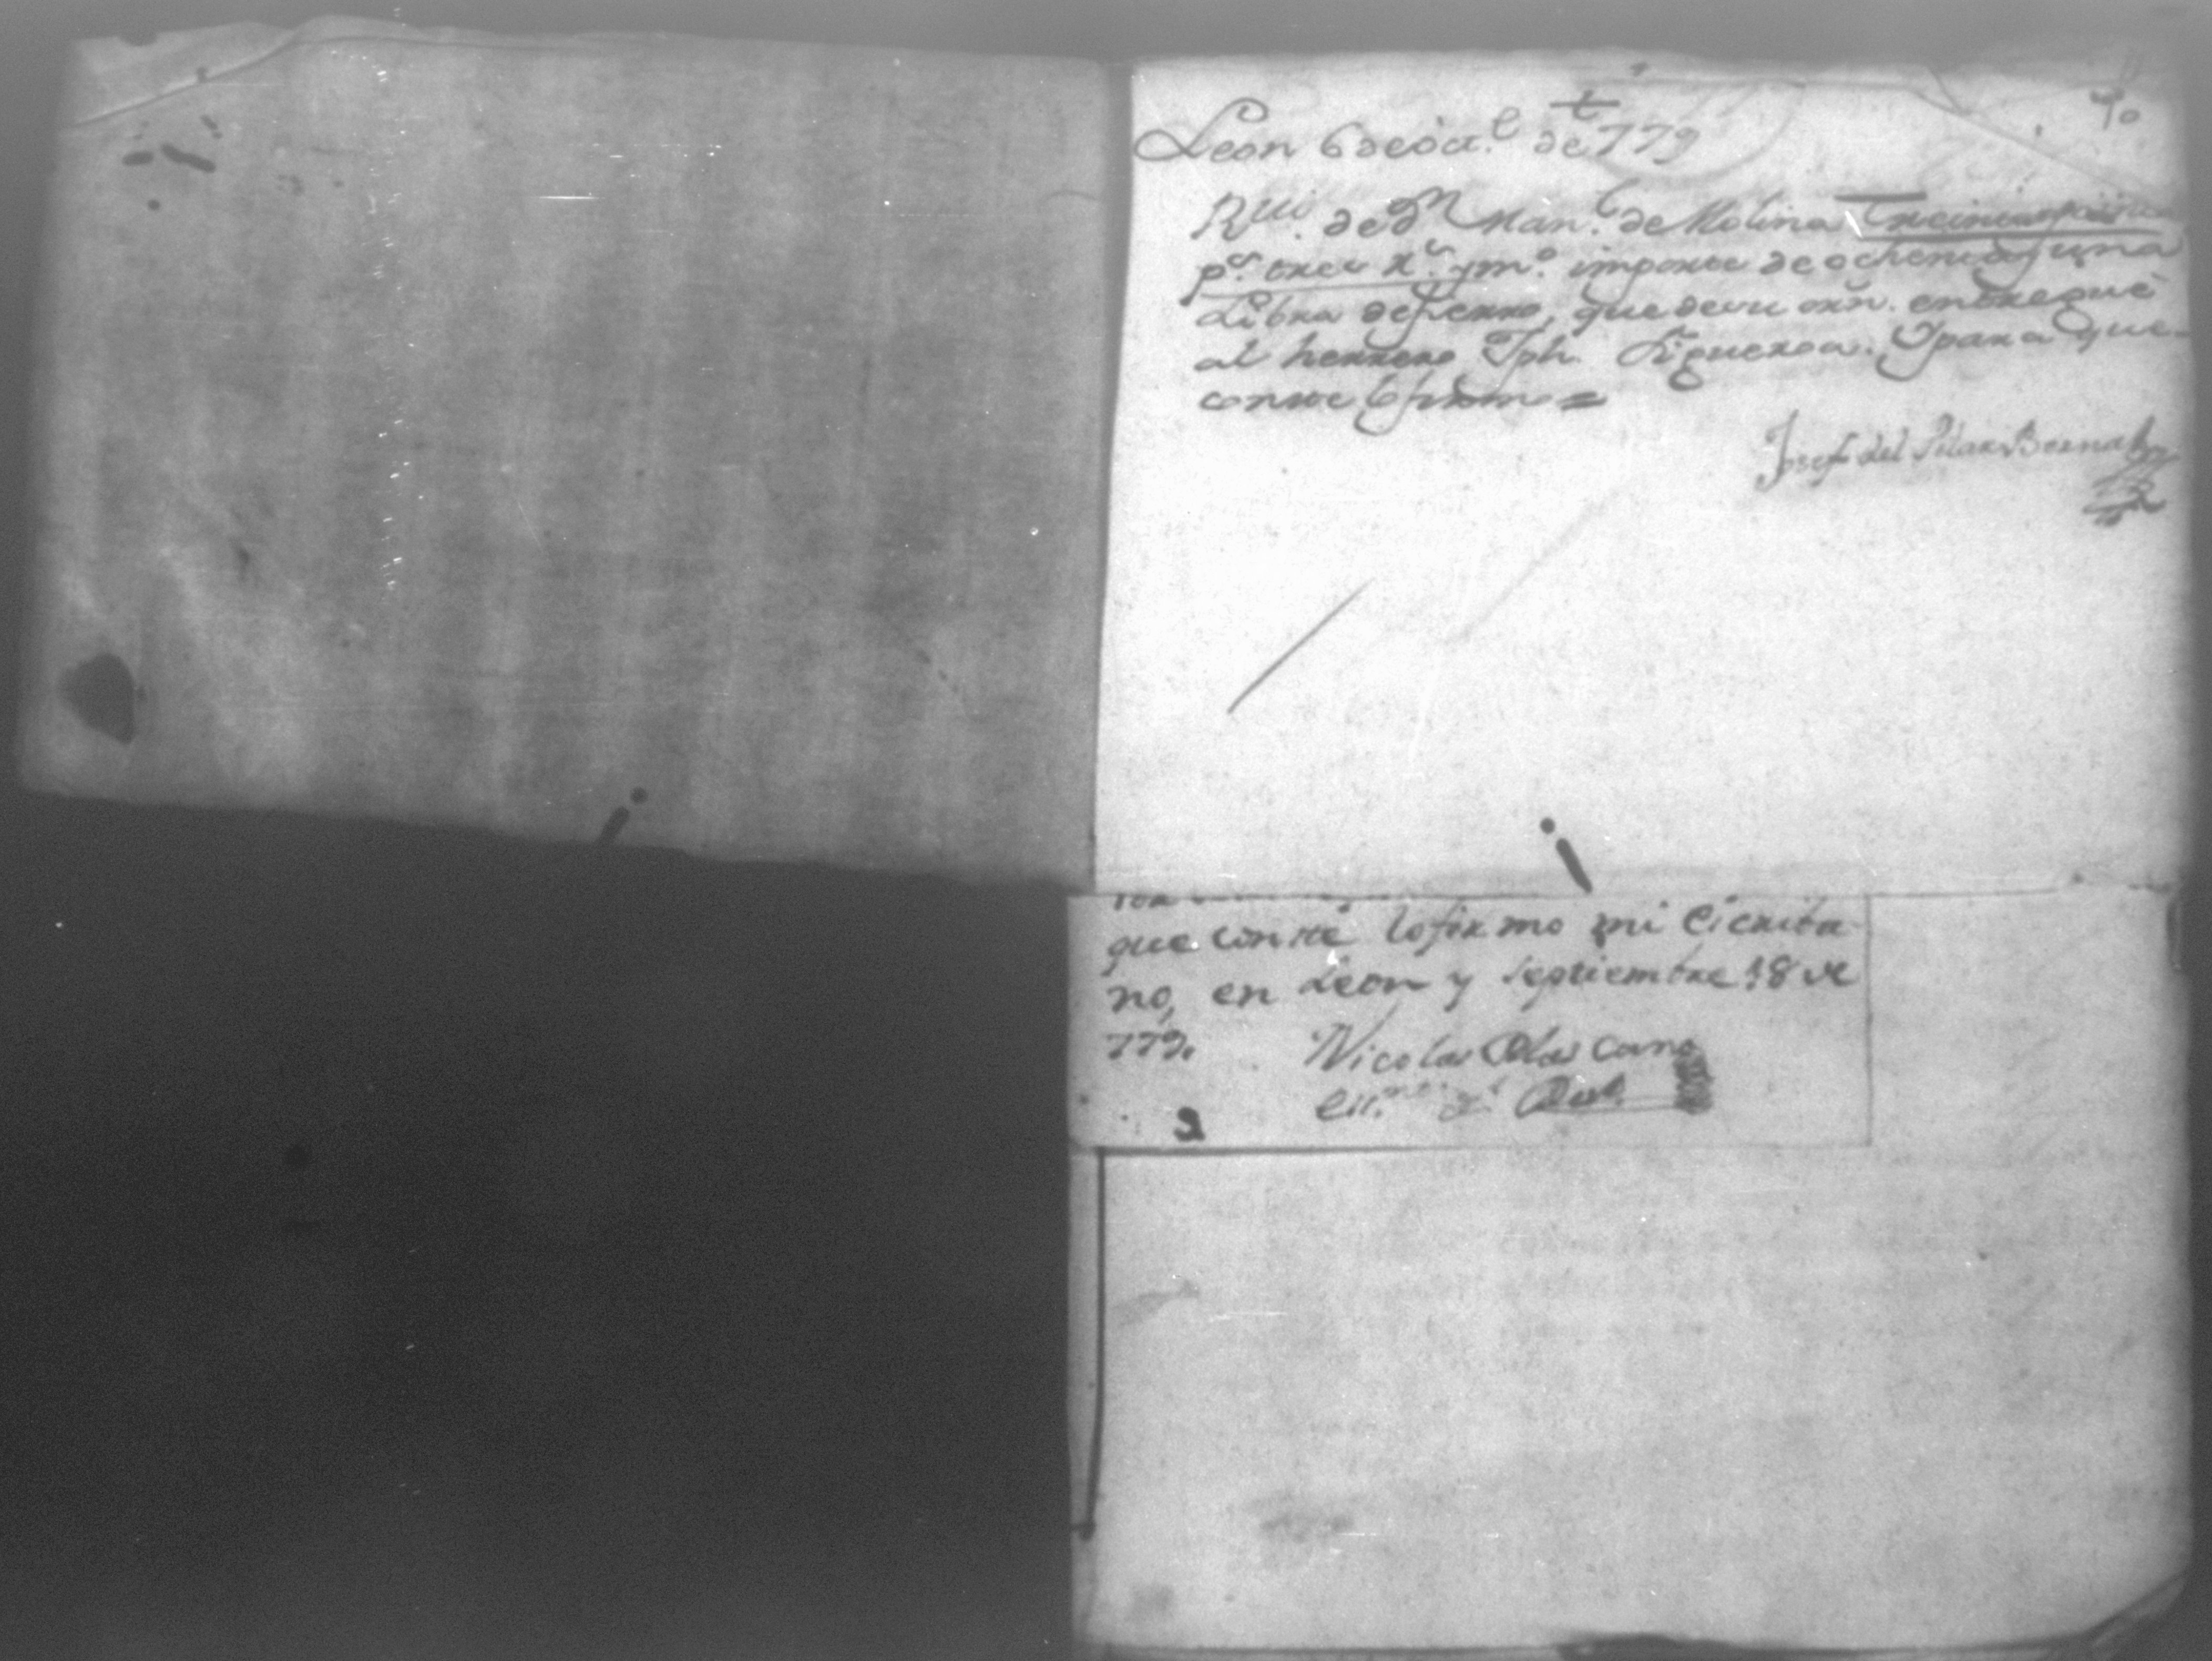 70
Leon 6 de oct.e de 779
Rui. de Dn Man.l de Molina Treinta y
p.s tres r.s y m.o importe de ochenta y una
Libra de fierro, que de su orn. entregué
al herrero Jph. Figueroa. Y para que
conste lo firmo =
Josef del Pilar Bernal
que conste lo firmo mi Escriba
no, en Leon y septiembre 18 de
779. Nicolas Blas Cano